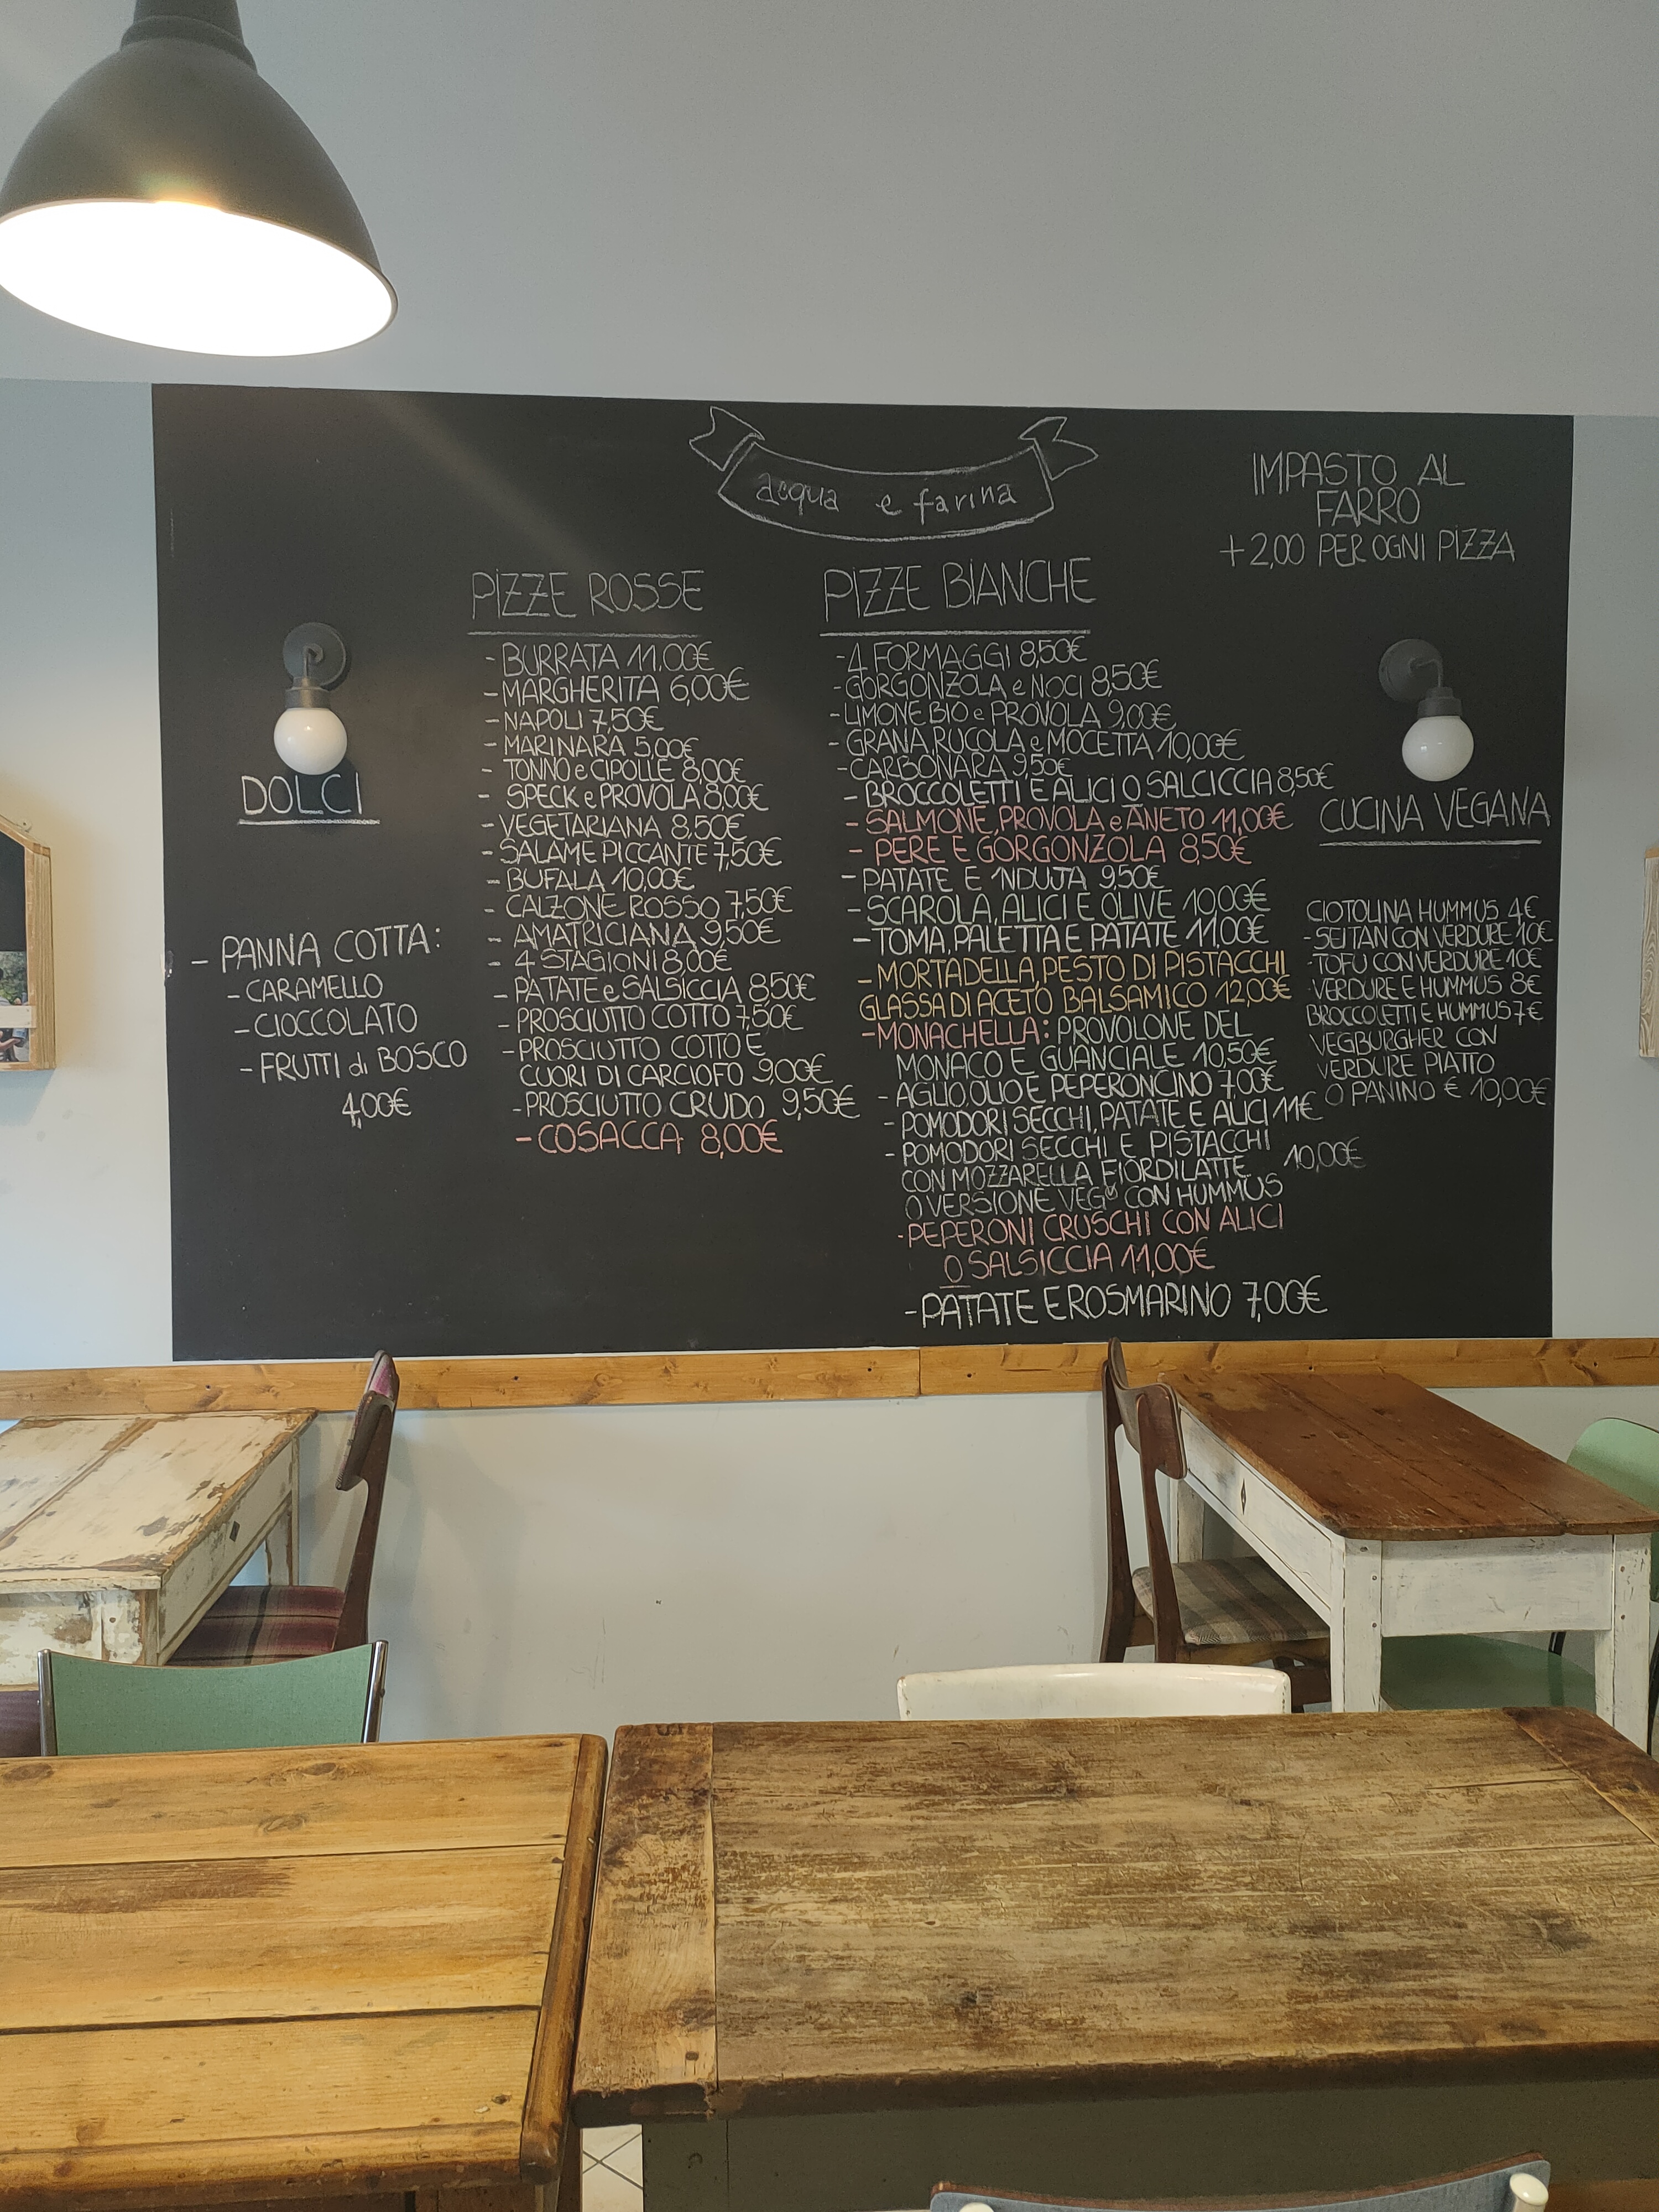 acqua e farina
IMPASTO AL
FARRO
+2,00 PER OGNI PIZZA
DOLCI
- PANNA COTTA:
- CARAMELLO
- CIOCCOLATO
- FRUTTI di BOSCO
4,00€
PIZZE ROSSE
- BURRATA 11,00€
- MARGHERITA 6,00€
- NAPOLI 7,50€
- MARINARA 5,00€
- TONNO e CIPOLLE 8,00€
- SPECK e PROVOLA 8,00€
- VEGETARIANA 8,50€
- SALAME PICCANTE 7,50€
- BUFALA 10,00€
- CALZONE ROSSO 7,50€
- AMATRICIANA 9,50€
- 4 STAGIONI 8,00€
- PATATE e SALSICCIA 8,50€
- PROSCIUTTO COTTO 7,50€
- PROSCIUTTO COTTO E
CUORI DI CARCIOFO 9,00€
- PROSCIUTTO CRUDO 9,50€
- COSACCA 8,00€
PIZZE BIANCHE
- 4 FORMAGGI 8,50€
- GORGONZOLA e NOCI 8,50€
- LIMONE BIO e PROVOLA 9,00€
- GRANA, RUCOLA e MOCETTA 10,00€
- CARBONARA 9,50€
- BROCCOLETTI E ALICI O SALCICCIA 8,50€
- SALMONE, PROVOLA e ANETO 11,00€
- PERE E GORGONZOLA 8,50€
- PATATE E 'NDUJA 9,50€
- SCAROLA, ALICI E OLIVE 10,00€
- TOMA, PALETTA E PATATE 11,00€
- MORTADELLA, PESTO DI PISTACCHI
GLASSA DI ACETO BALSAMICO 12,00€
- MONACHELLA: PROVOLONE DEL
MONACO E GUANCIALE 10,50€
- AGLIO, OLIO E PEPERONCINO 7,00€
- POMODORI SECCHI, PATATE E ALICI 11€
- POMODORI SECCHI E PISTACCHI
CON MOZZARELLA FIORDILATTE 10,00€
O VERSIONE VEG CON HUMMUS
- PEPERONI CRUSCHI CON ALICI
O SALSICCIA 11,00€
- PATATE E ROSMARINO 7,00€
CUCINA VEGANA
CIOTOLINA HUMMUS 4€
- SEITAN CON VERDURE 10€
- TOFU CON VERDURE 10€
- VERDURE E HUMMUS 8€
BROCCOLETTI E HUMMUS 7€
VEGBURGHER CON
VERDURE PIATTO
O PANINO € 10,00€